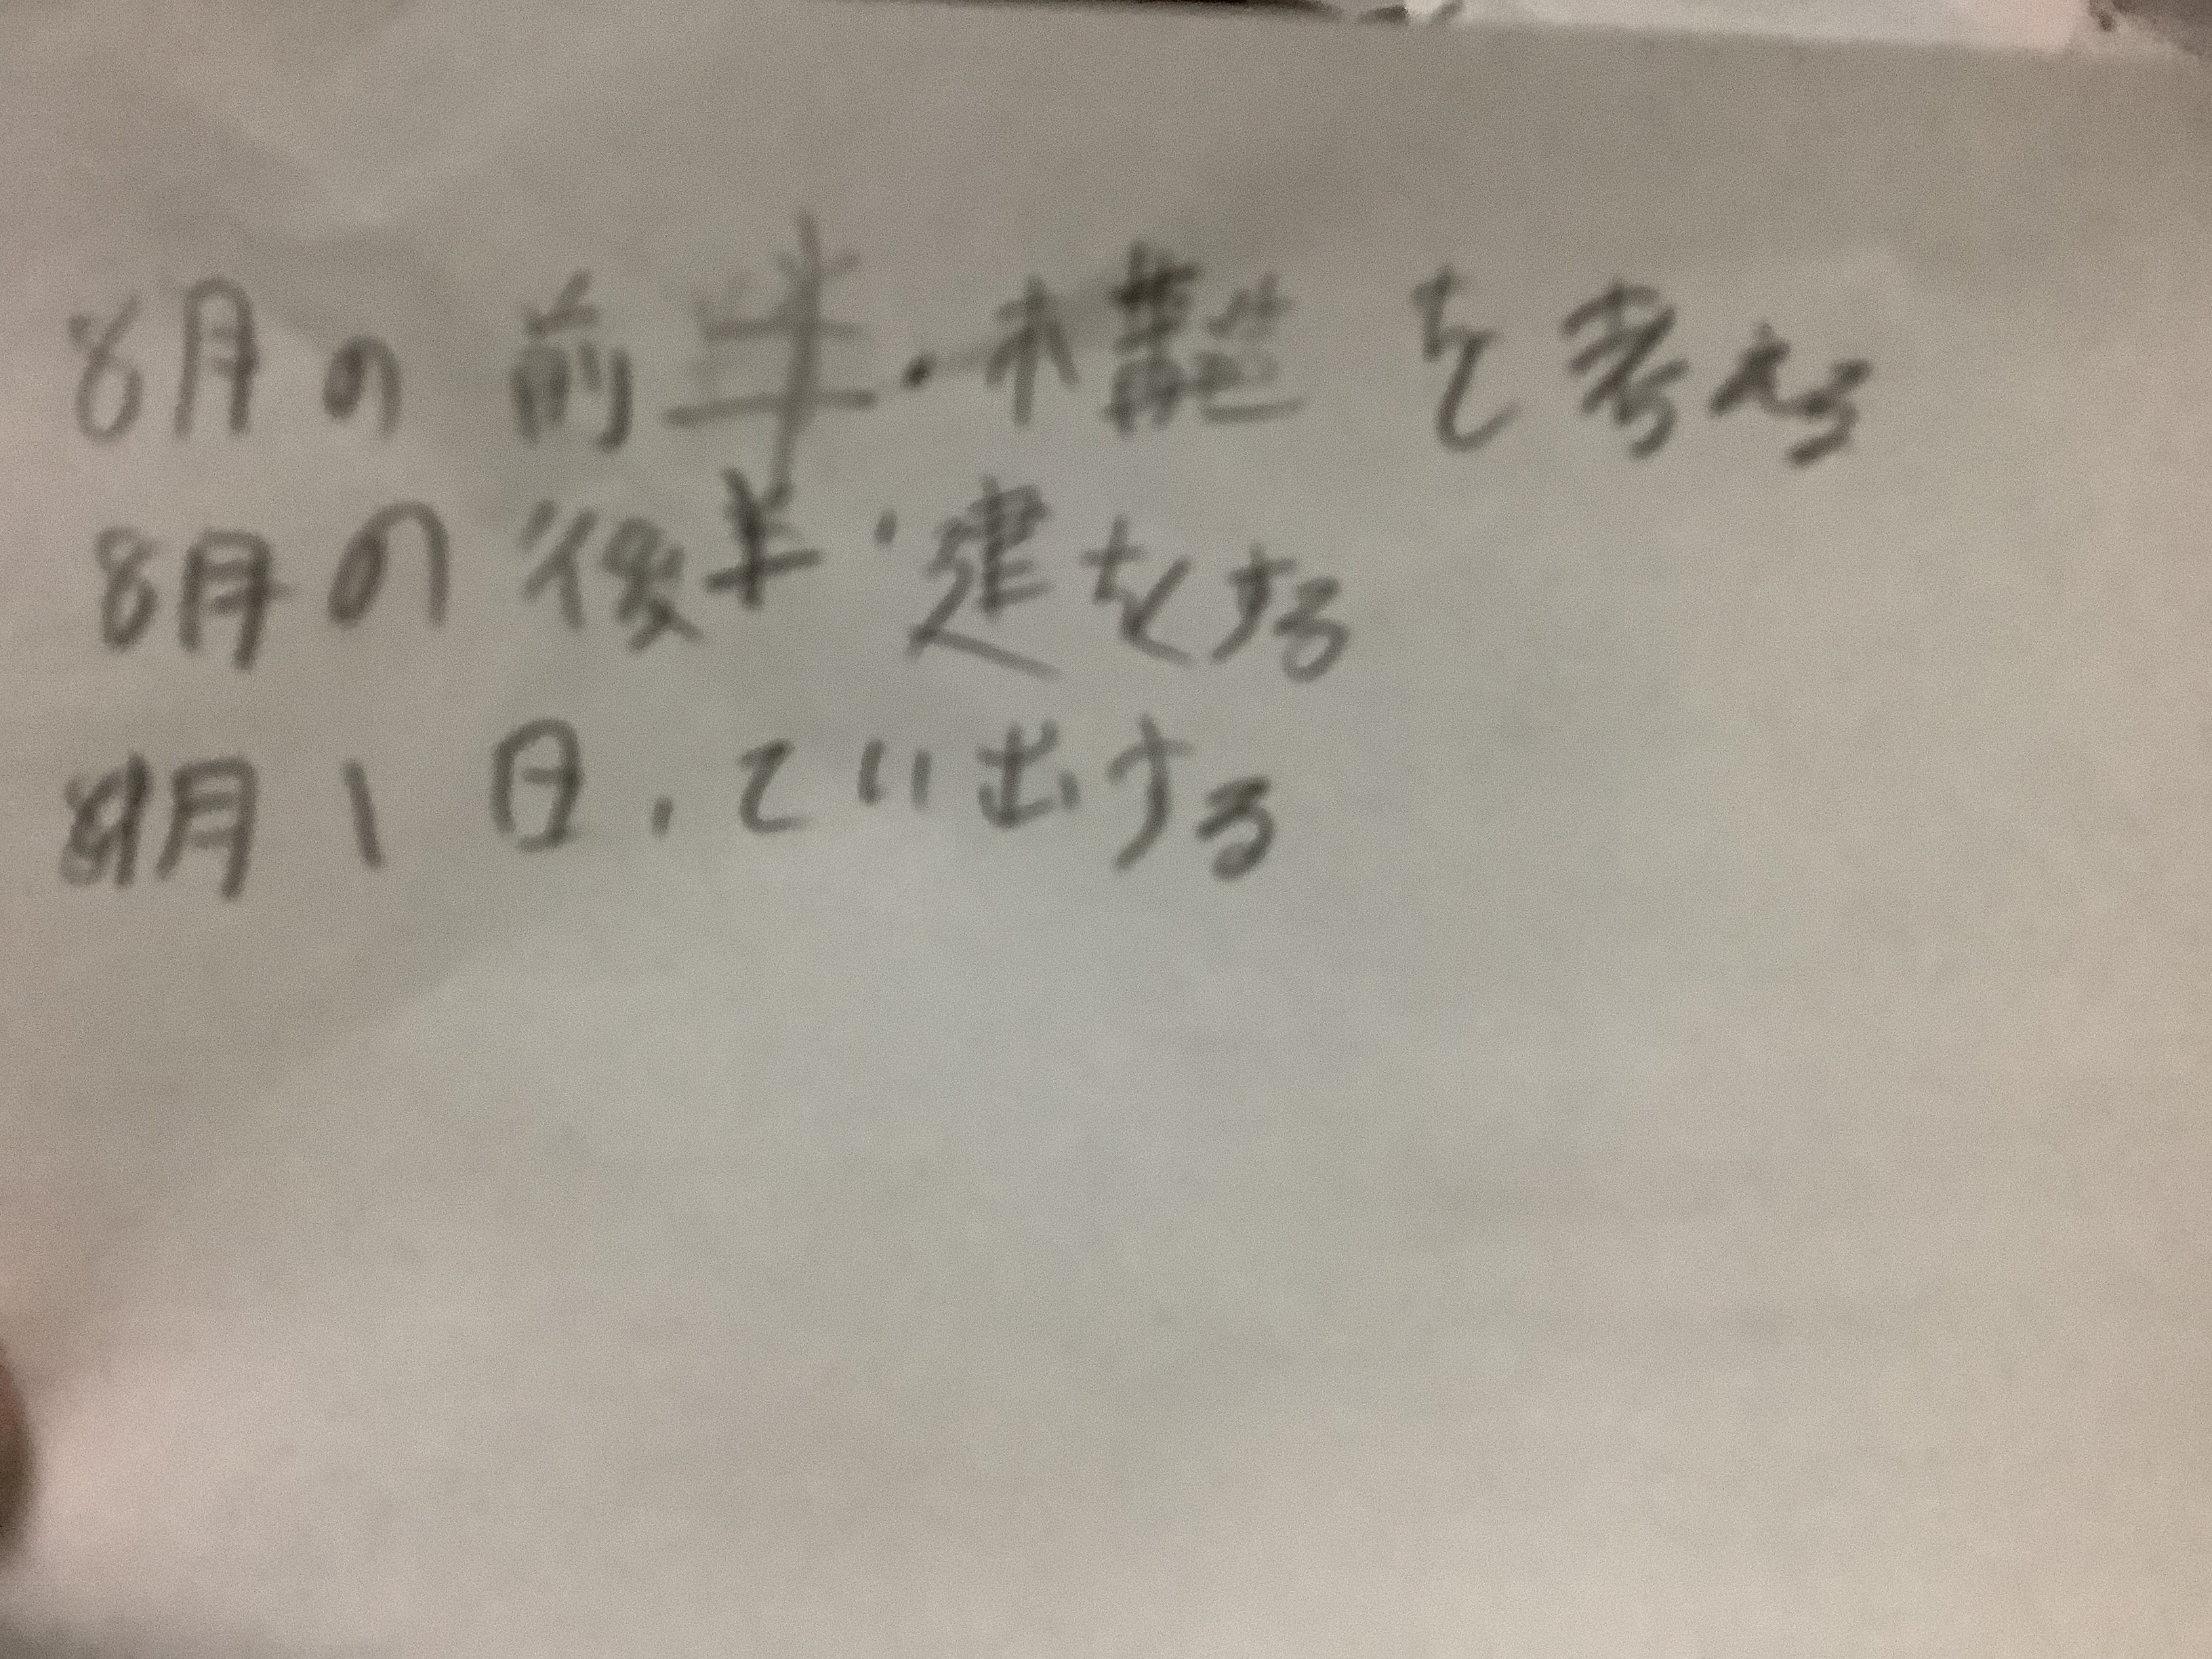 8月の前半・構造を考える
8月の後半・建をする
9月1日、てい出する